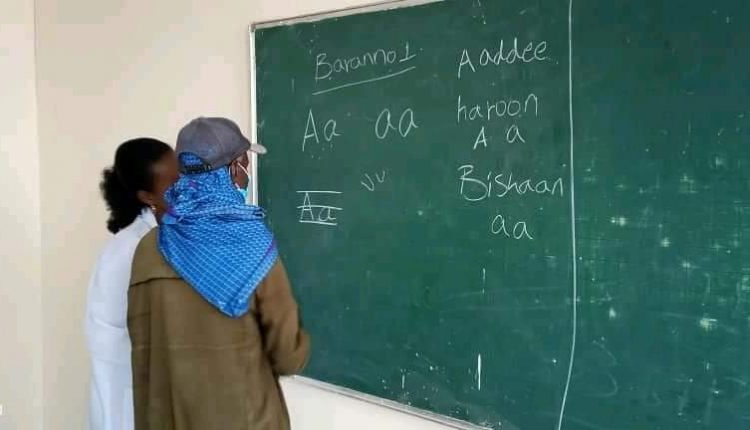 Baranno 1
Aa aa
Aa
Aaddee
haroon
A a
Bishaan
aa